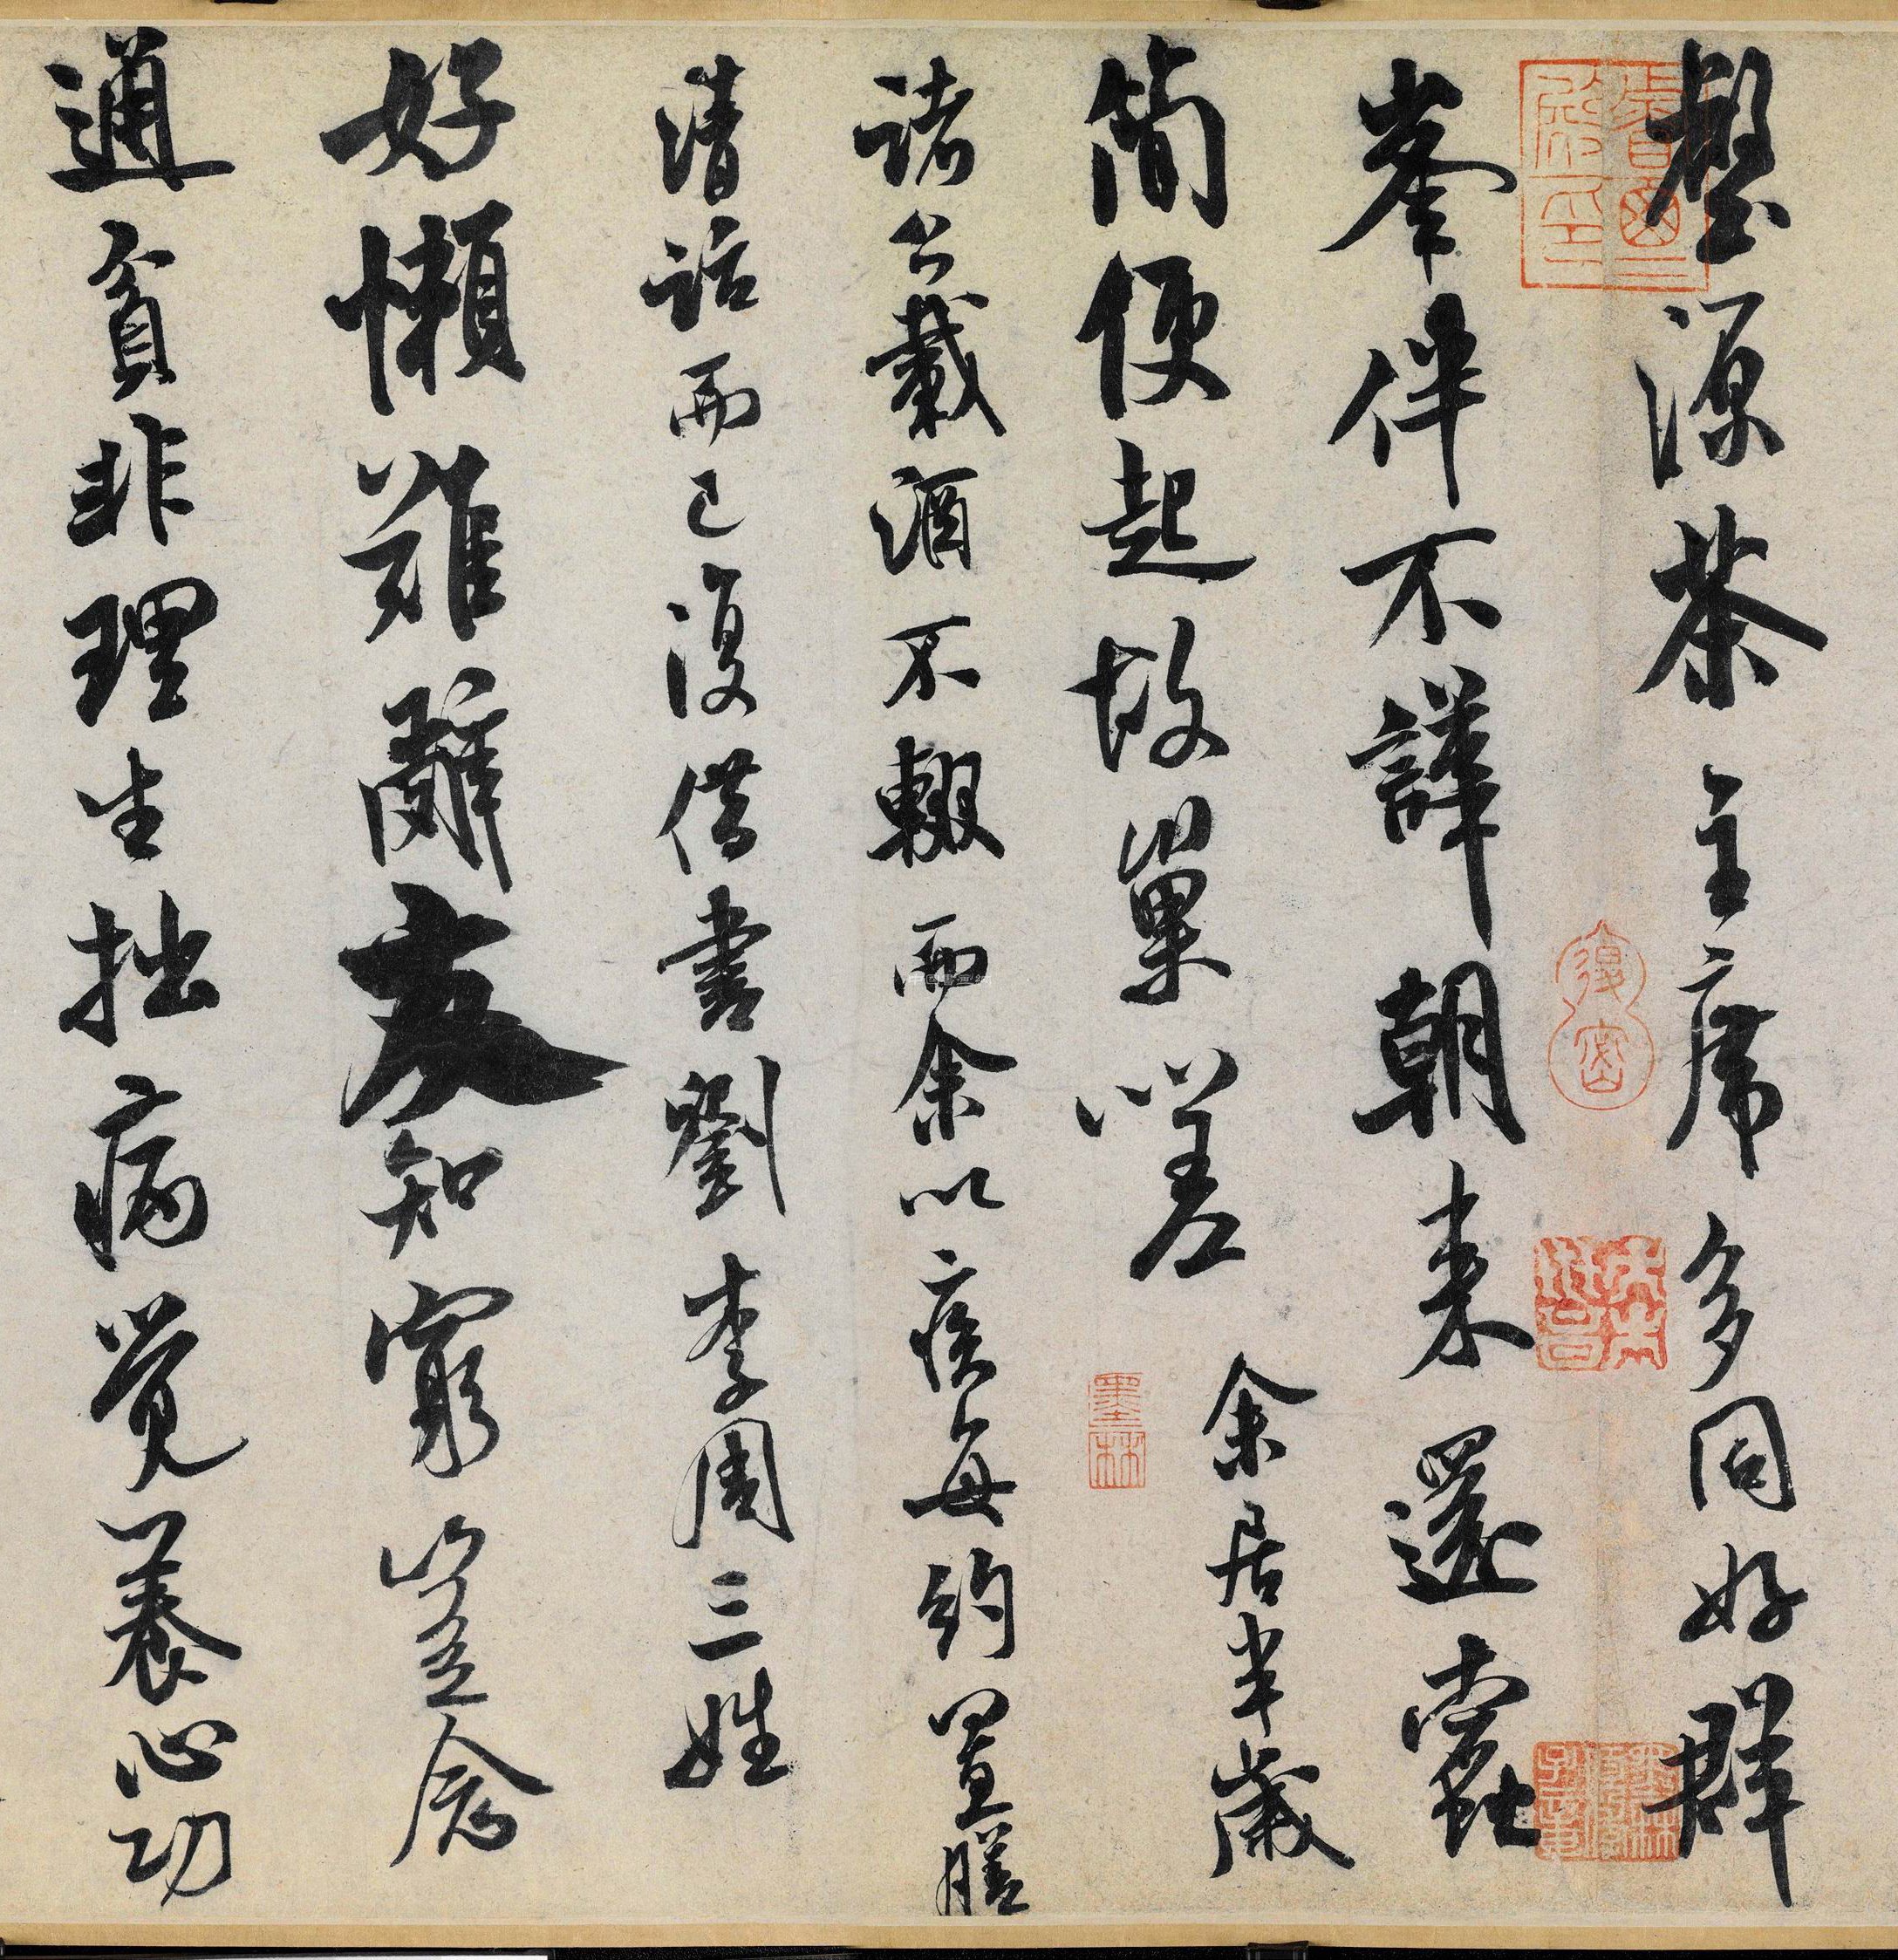 壑源茶主席多同好群
峯伴不譁朝来還蠹
簡便起故巢嗟
余居半歲
諸公載酒不輟而余以疾每約置膳
清話而已復借書劉李周三姓
好懶難辭友知窮豈念
通貧非理生拙病覺養心功
墨林